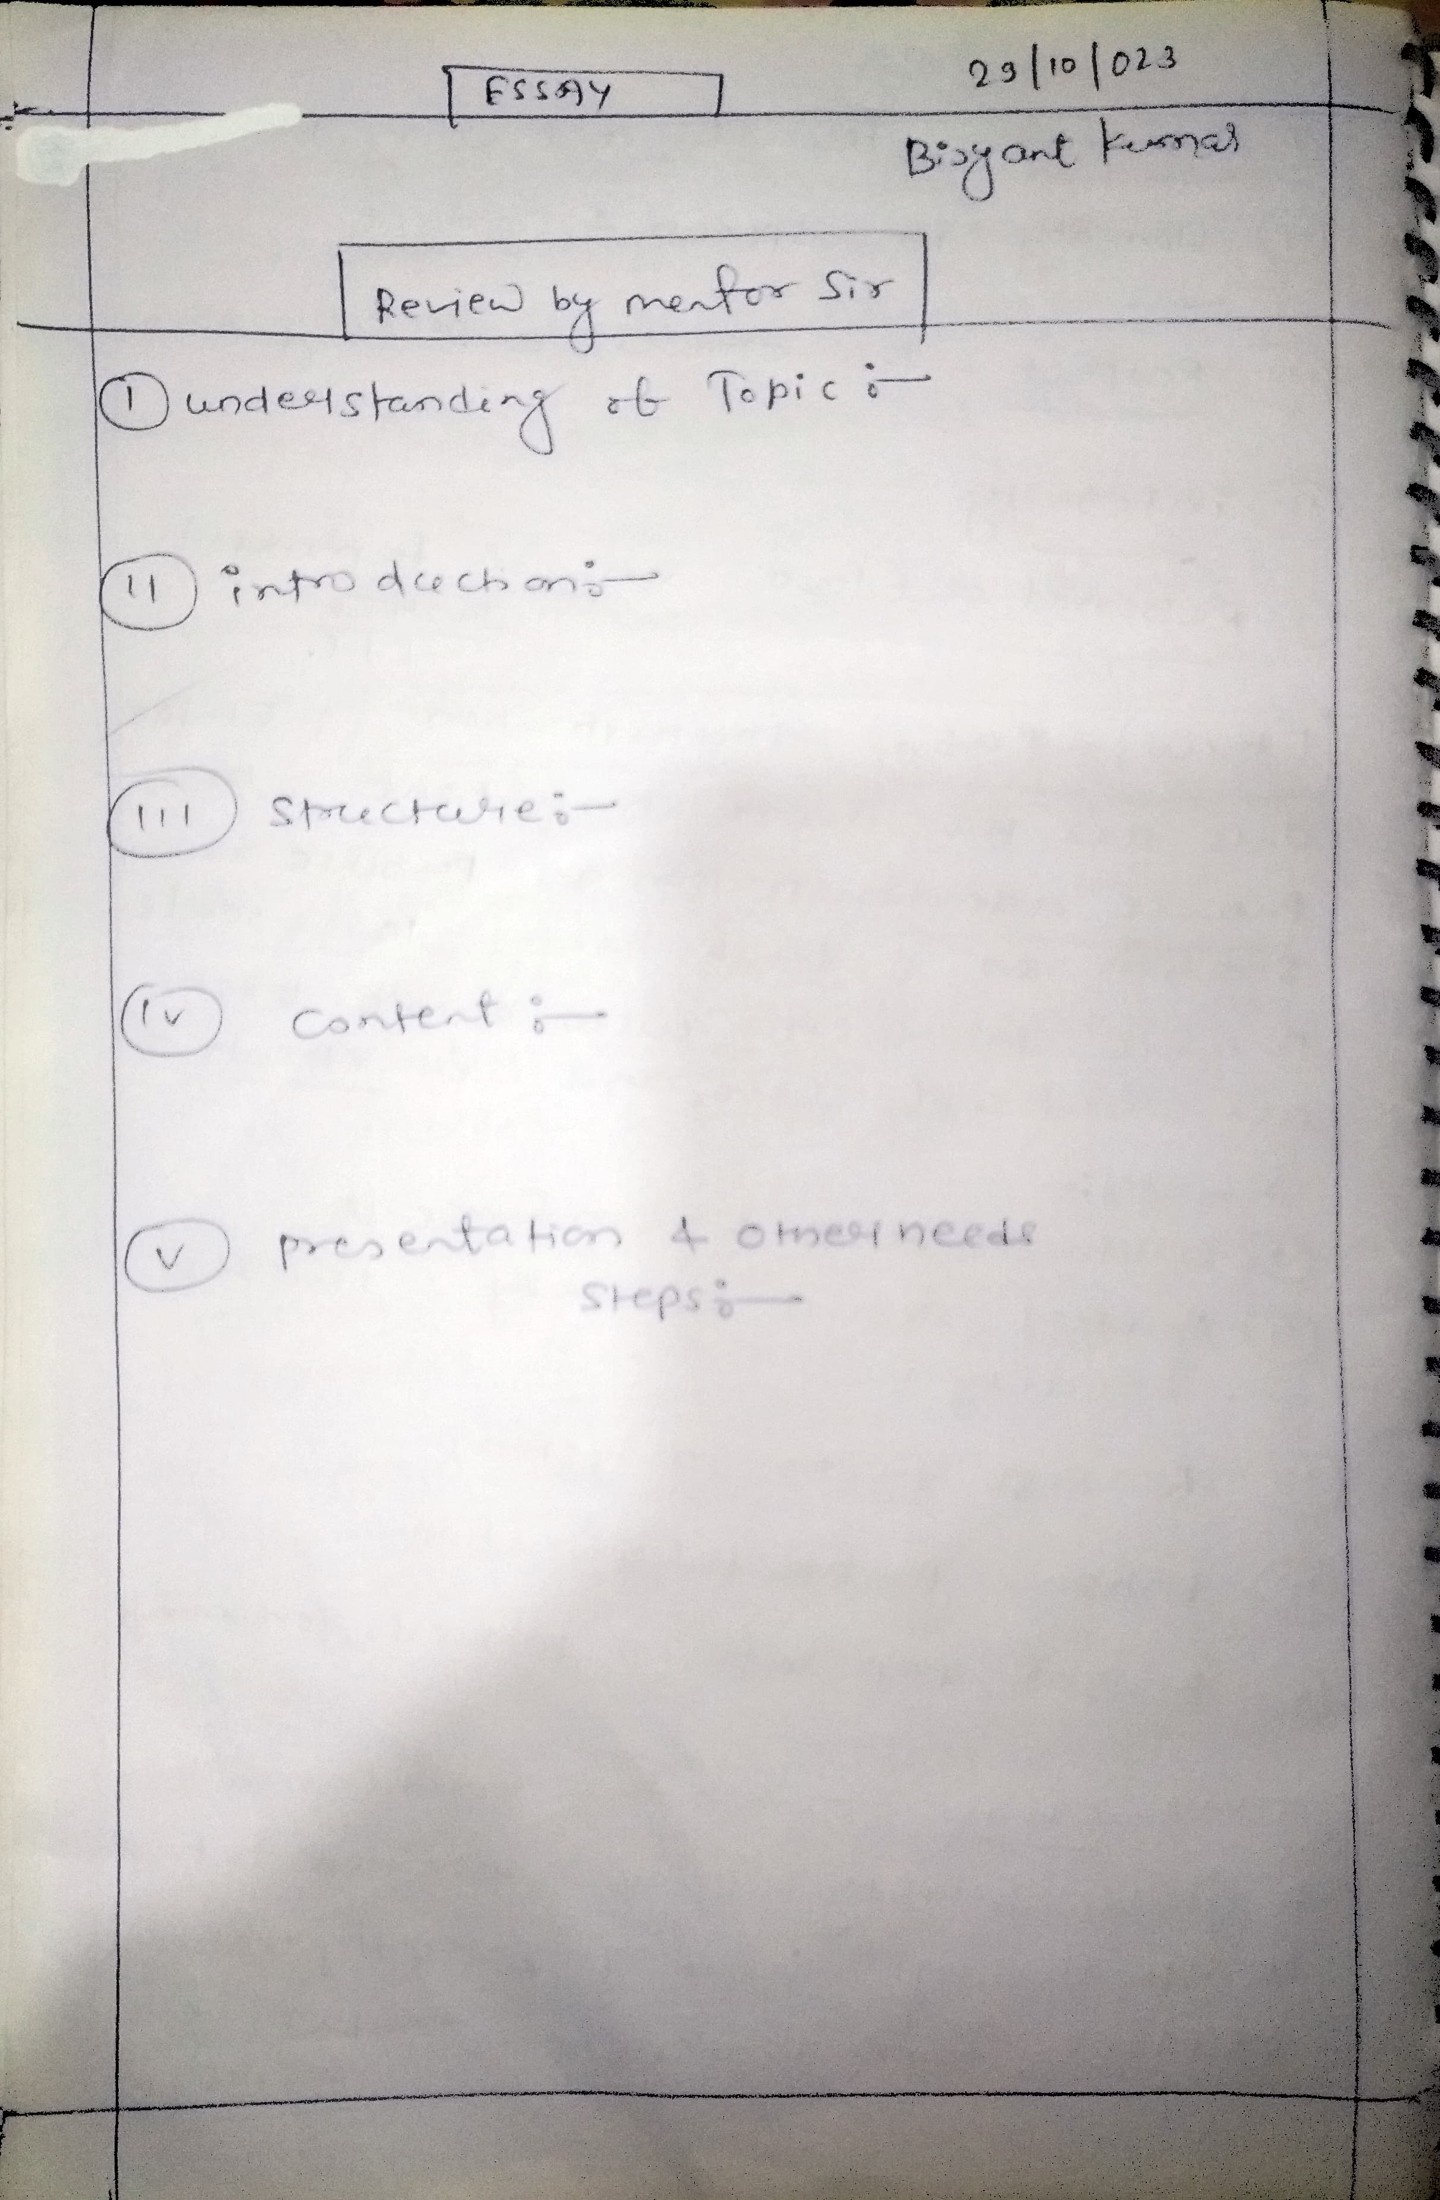 ESSAY
29/10/023
Kumar
Review by mentor Sir
I understanding of Topic :-
II introduction :-
III Structure :-
IV content :-
V presentation & other needs
steps :-